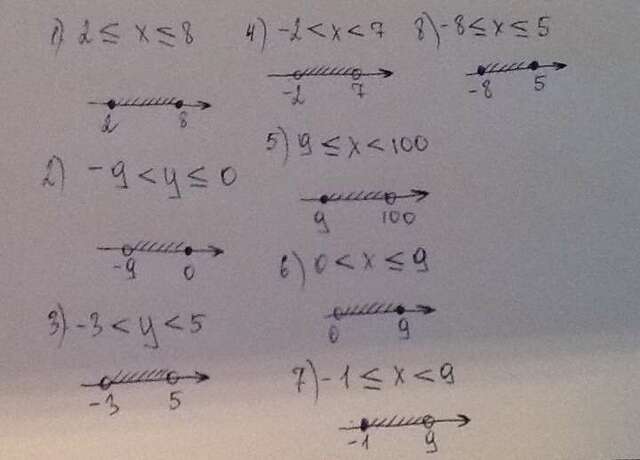 1) 2 ≤ x ≤ 8
2 8
2) -9 < y ≤ 0
-9 0
3) -3 < y < 5
-3 5
4) -2 < x < 7
-2 7
5) 9 ≤ x < 100
9 100
6) 0 < x ≤ 9
0 9
7) -1 ≤ x < 9
-1 9
8) -8 ≤ x ≤ 5
-8 5